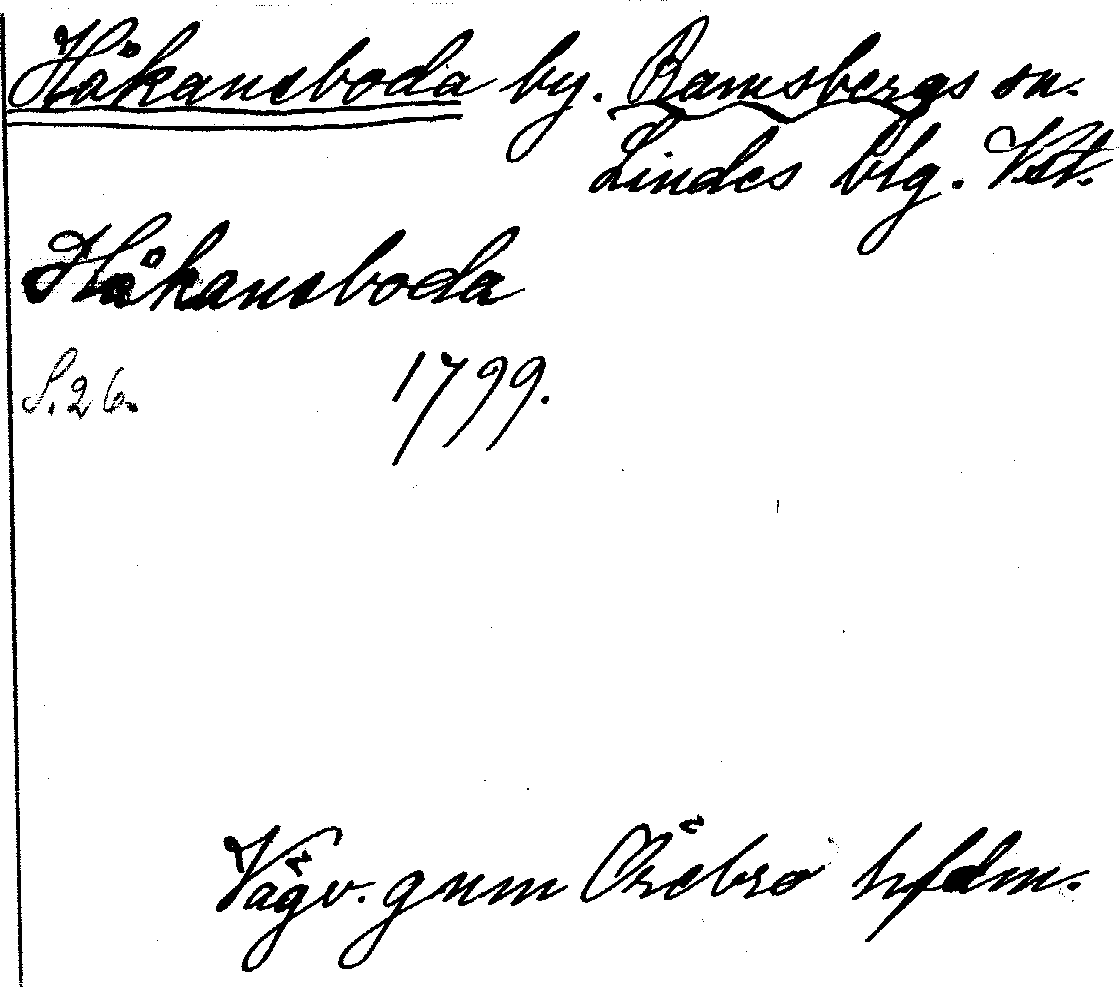 Håkansboda by. Ramsbergs sn.
Lindes blg. Vstm.
Håkansboda
S. 26. 1799.
Vägv. gnm Örebro hfdm.